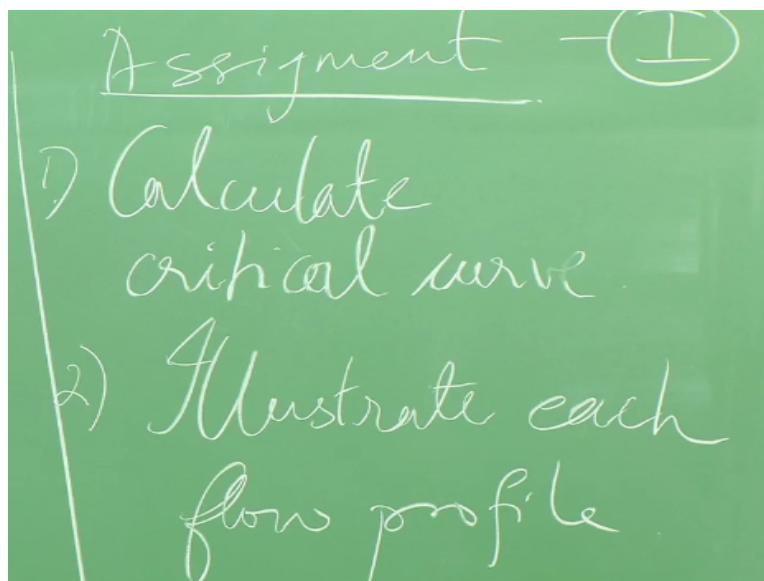 Assigment - I
1) Calculate
critical curve.
2) Illustrate each
flow profile.